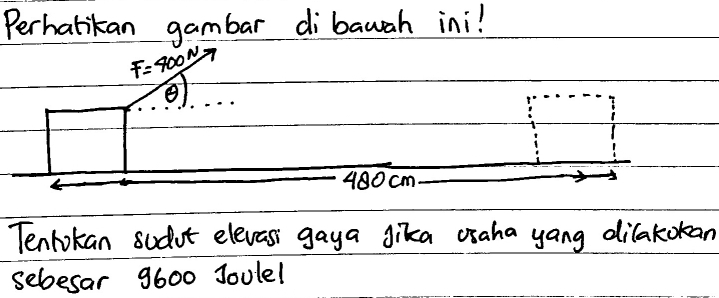 Perhatikan gambar di bawah ini!
F=400N
θ
480 cm
Tentukan sudut elevasi gaya jika usaha yang dilakukan
sebesar 9600 Joule!